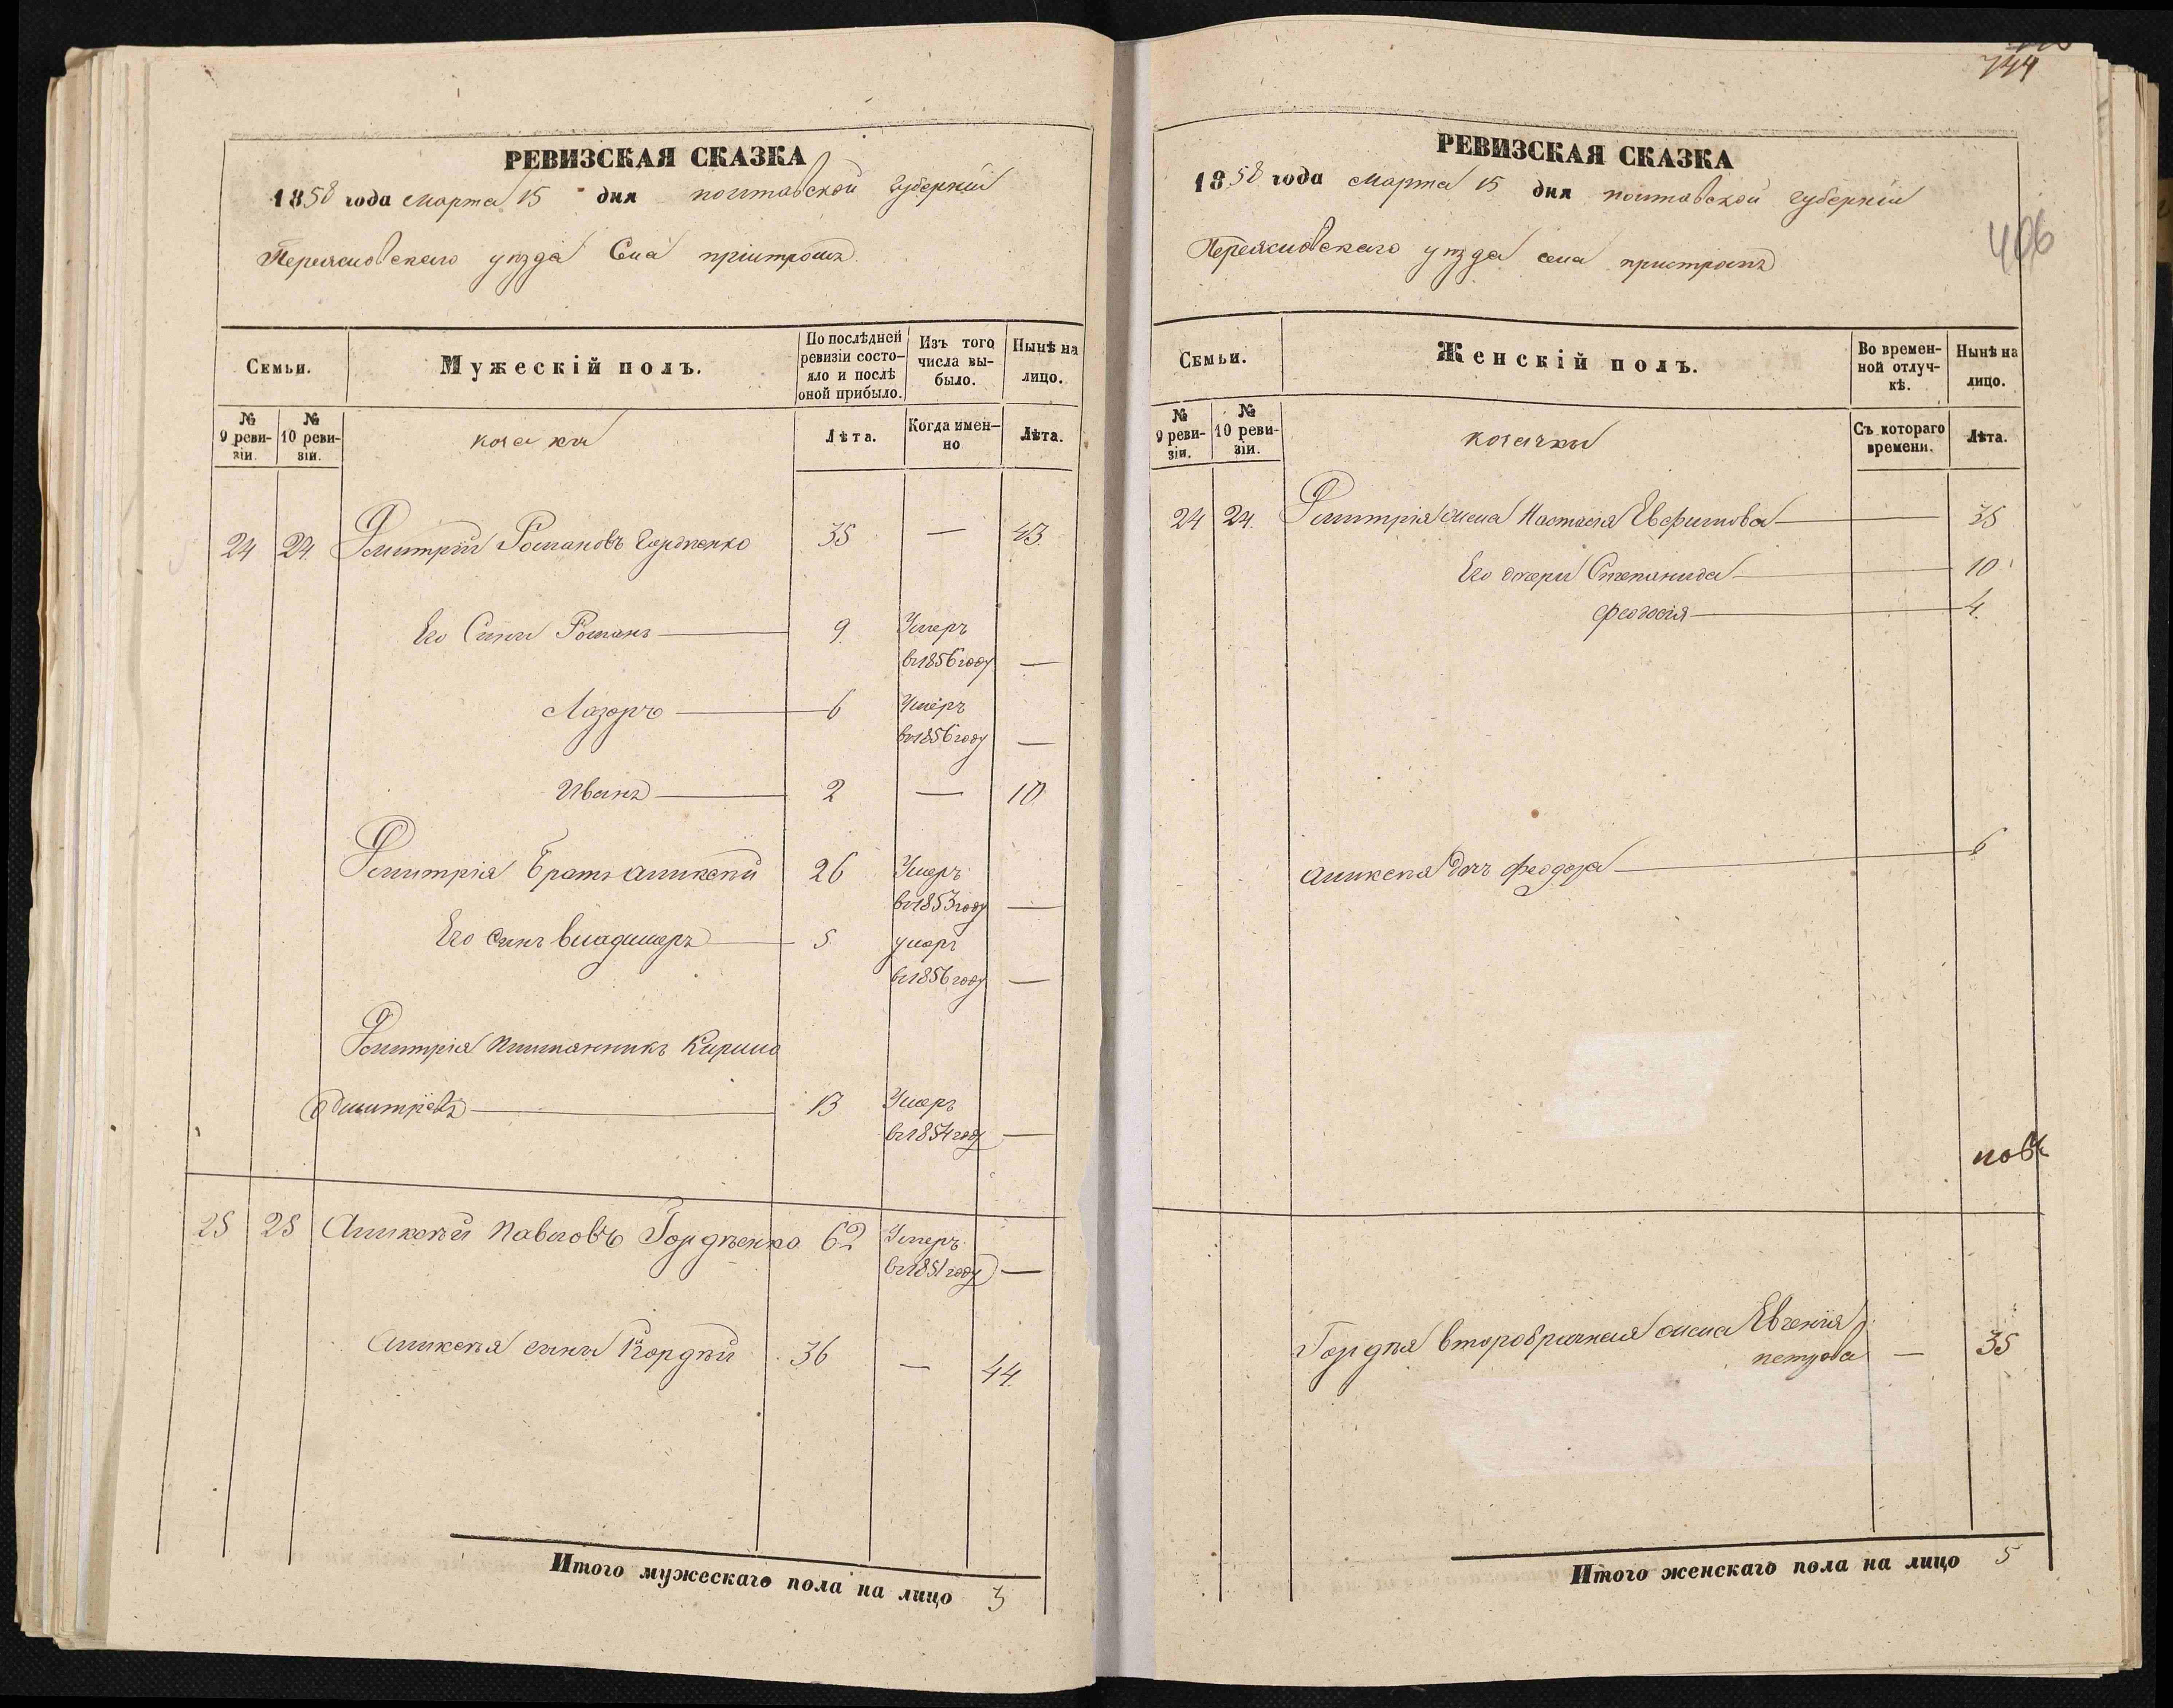 РЕВИЗСКАЯ СКАЗКА
1858 года Марта 15 дня полтавской губерніи
Переяславскаго уѣзда Села пристромъ
Семьи.
Мужескій полъ.
По послѣдней ревизіи состо-
яло и послѣ
оной прибыло.
Изъ того
числа вы-
было.
Нынѣ на
лицо.
№
9 реви-
зіи.
№
10 реви-
зіи.
козаки
Лѣта.
Когда имен-
но
Лѣта.
24 24. Дмитрій Романовъ Гордѣенко 35 — 43.
Его Сыны Романъ — 9. Умеръ
въ 1856 году —
Лазарь — 6 Умеръ
въ 1856 году —
Иванъ — 2 — 10.
Дмитрія братъ Аликсѣй 26 Умеръ
въ 1853 году —
Его сынъ владимеръ — 5. умеръ
въ 1856 году —
Дмитрія племянникъ Кирило
Дмитріевъ — 13 Умеръ
въ 1854 году —
25 25 Аликсѣй Павловъ Гордѣенко 62 Умеръ
въ 1851 году —
Аликсѣя сынъ Гордѣй 36 — 44.
Итого мужескаго пола на лицо 3
744
406
РЕВИЗСКАЯ СКАЗКА
1858 года Марта 15 дня полтавской губерніи
Переяславскаго уѣзда села пристромъ
Семьи.
Женскій полъ.
Во времен-
ной отлуч-
кѣ.
Нынѣ на
лицо.
№
9 реви-
зіи.
№
10 реви-
зіи.
козачки
Съ котораго
времени.
Лѣта.
24 24. Дмитрія жена Настасія Евфимова — 35
Его дочери Степанида — 10
Феодосія — 4.
Аликсѣя дочь Феодора — 6
Гордѣя второбрачная жена Евгенія
петрова — 35
Итого женскаго пола на лицо 5